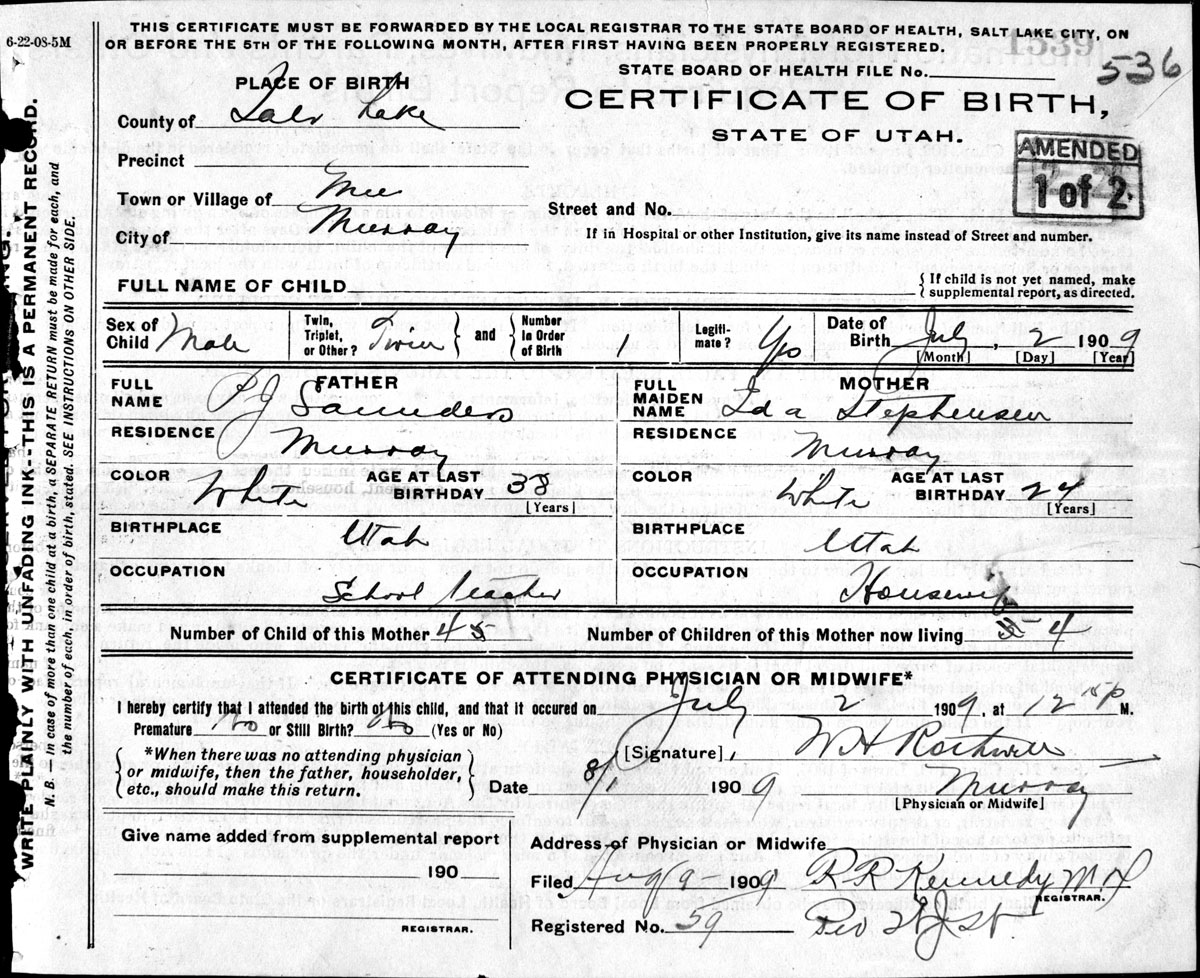 THIS CERTIFICATE MUST BE FORWARDED BY THE LOCAL REGISTRAR TO THE STATE BOARD OF HEALTH, SALT LAKE CITY, ON
OR BEFORE THE 5TH OF THE FOLLOWING MONTH, AFTER FIRST HAVING BEEN PROPERLY REGISTERED.
6-22-08-5M
1539
536
STATE BOARD OF HEALTH FILE No.
PLACE OF BIRTH
CERTIFICATE OF BIRTH,
STATE OF UTAH.
County of Salt Lake
AMENDED
1 of 2
Precinct
Town or Village of
Street and No.
City of Murray
If in Hospital or other Institution, give its name instead of Street and number.
FULL NAME OF CHILD
{ If child is not yet named, make
supplemental report, as directed.
Sex of Child Male
Twin, Triplet, or Other? Twin
and
Number In Order of Birth 1
Legitimate? Yes
Date of Birth July, 2 1909
[Month] [Day] [Year]
FATHER
FULL NAME P J Saunders
RESIDENCE Murray
COLOR White AGE AT LAST BIRTHDAY 38 [Years]
BIRTHPLACE Utah
OCCUPATION School teacher
MOTHER
FULL MAIDEN NAME Ida Stephensen
RESIDENCE Murray
COLOR White AGE AT LAST BIRTHDAY 24 [Years]
BIRTHPLACE Utah
OCCUPATION Housewife
Number of Child of this Mother 4 5
Number of Children of this Mother now living 5 4
CERTIFICATE OF ATTENDING PHYSICIAN OR MIDWIFE*
I hereby certify that I attended the birth of this child, and that it occured on July 2 1909, at 2 P M.
Premature No or Still Birth? No (Yes or No)
*When there was no attending physician
or midwife, then the father, householder,
etc., should make this return.
[Signature] W H Rothwell
Date 8/1 1909 Murray
[Physician or Midwife]
Give name added from supplemental report
190
REGISTRAR.
Address of Physician or Midwife
Filed Aug 9 1909 R R Kennedy M D
REGISTRAR.
Registered No. 59
WRITE PLAINLY WITH UNFADING INK--THIS IS A PERMANENT RECORD.
N. B. in case of more than one child at a birth, a SEPARATE RETURN must be made for each, and
the number of each, in order of birth, stated. SEE INSTRUCTIONS ON OTHER SIDE.